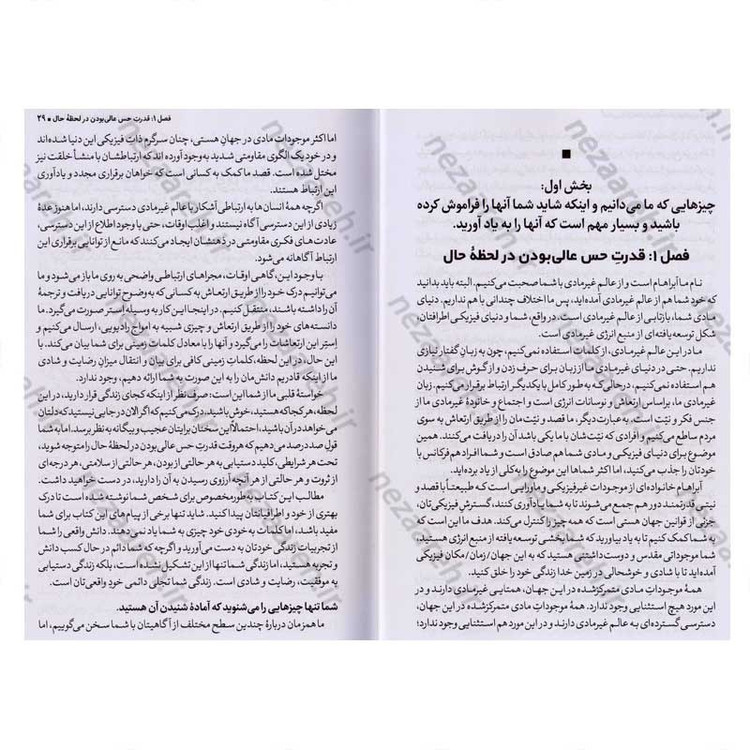 ■
بخش اول:
چیزهایی که ما می‌دانیم و اینکه شاید شما آنها را فراموش کرده
باشید و بسیار مهم است که آنها را به یاد آورید.
فصل ۱: قدرتِ حس عالی‌بودن در لحظهٔ حال
نام ما آبراهام است و از عالم غیرمادی با شما صحبت می‌کنیم. البته باید بدانید
که خود شما هم از عالم غیرمادی آمده‌اید، پس ما اختلاف چندانی با هم نداریم. دنیای
مادی شما، بازتابی از عالم غیرمادی است. در واقع، شما و دنیای فیزیکی اطرافتان،
شکل توسعه‌یافته‌ای از منبع انرژی غیرمادی است.
ما در این عالم غیرمادی، از کلمات استفاده نمی‌کنیم، چون به زبانِ گفتار نیازی
نداریم. حتی در دنیای غیرمادی ما از زبان برای حرف زدن و از گوش برای شنیدن
هم استفاده نمی‌کنیم، درحالی‌که به‌طور کامل با یکدیگر ارتباط برقرار می‌کنیم. زبان
غیرمادی ما، براساس ارتعاش و نوسانات انرژی است و اجتماع و خانوادهٔ غیرمادی ما از
جنس فکر و نیّت است. به عبارت دیگر، ما قصد و نیّت‌مان را از طریق ارتعاش به سوی
مردم ساطع می‌کنیم و افرادی که نیّت‌شان با ما یکی باشد آن را دریافت می‌کنند. همین
موضوع برای دنیای فیزیکی و مادی شما هم صادق است و شما هم افراد هم‌فرکانس با
خودتان را جذب می‌کنید، اما اکثر شماها این موضوع را به‌کلی از یاد برده‌اید.
آبراهام خانواده‌ای از موجودات غیرفیزیکی و ماورایی است که طبیعتاً با قصد و
نیتی قدرتمند دور هم جمع می‌شوند تا به شما یادآوری کنند، گسترش فیزیکی‌تان،
جزئی از قوانین جهان هستی است که همه چیز را کنترل می‌کند. هدف ما این است که
به شما کمک کنیم تا به یاد بیاورید که شما بخشی توسعه یافته از منبع انرژی هستید،
شما موجوداتی مقدس و دوست‌داشتنی هستید که به این جهان/زمان/مکان فیزیکی
آمده‌اید تا با شادی و خوشحالی در زمین خدا زندگی خود را خلق کنید.
همهٔ موجودات مادی متمرکزشده در این جهان، همتایی غیرمادی دارند و در
این مورد هیچ استثنایی وجود ندارد. همهٔ موجوداتِ مادیِ متمرکزشده در این جهان،
دسترسی گسترده‌ای به عالم غیرمادی دارند و در این مورد هم استثنایی وجود ندارد؛
فصل ۱: قدرتِ حس عالی‌بودن در لحظهٔ حال ■ ۲۹
اما اکثر موجودات مادی در جهانِ هستی، چنان سرگرم ذات فیزیکی این دنیا شده‌اند
و در خود یک الگوی مقاومتی شدید به وجود آورده‌اند که ارتباطشان با منشأ خلقت نیز
مختل شده است. قصد ما کمک به کسانی است که خواهان برقراری مجدد و یادآوری
این ارتباط هستند.
اگرچه همهٔ انسان‌ها به ارتباطی آشکار با عالم غیرمادی دسترسی دارند، اما هنوز عدهٔ
زیادی از این دسترسی آگاه نیستند و اغلب اوقات، حتی با وجود اطلاع از این دسترسی،
عادت‌های فکری مقاومتی در ذهنشان ایجاد می‌کنند که مانع از توانایی برقراری این
ارتباط آگاهانه می‌شود.
با وجود این، گاهی اوقات، مجراهای ارتباطی واضحی به روی ما باز می‌شود و ما
می‌توانیم درک خود را از طریق ارتعاش به کسانی که به‌وضوح توانایی دریافت و ترجمهٔ
آن را داشته باشند، منتقل کنیم. در اینجا این کار به وسیلهٔ استر صورت می‌گیرد. ما
دانسته‌های خود را از طریق ارتعاش و چیزی شبیه به امواج رادیویی، ارسال می‌کنیم و
اِستِر این ارتعاشات را می‌گیرد و آنها را با معادل کلماتِ زمینی برای شما بیان می‌کند. با
این حال، در این لحظه، کلماتِ زمینی کافی برای بیان و انتقال میزانِ رضایت و شادی
ما از اینکه قادریم دانش‌مان را به این صورت به شما ارائه دهیم، وجود ندارد.
خواستهٔ قلبی ما از شما این است: صرف‌نظر از اینکه کجای زندگی قرار دارید، در این
لحظه، هر کجا که هستید، خوش باشید. درک می‌کنیم که اگر الان در جایی نیستید که دلتان
می‌خواهد در آن باشید، احتمالاً این سخنان برایتان عجیب و بیگانه به نظر برسد. اما به شما
قول صددرصد می‌دهیم که هر وقت قدرتِ حس عالی‌بودن در لحظهٔ حال را متوجه شوید،
تحت هر شرایطی، کلید دستیابی به هر حالتی از بودن، هر حالتی از سلامتی، هر درجه‌ای
از ثروت و هر حالتی از هر آنچه آرزوی رسیدن به آن را دارید، در دست خواهید داشت.
مطالب این کتاب به‌طور مخصوص برای شخص شما نوشته شده است تا درک
بهتری از خود و اطرافیانتان پیدا کنید. شاید تنها برخی از پیام‌های این کتاب برای شما
مفید باشد، اما کلمات به خودی خود چیزی به شما یاد نمی‌دهند. دانش واقعی را شما
از تجربیات زندگی خودتان به دست می‌آورید و اگرچه که شما دائم در حال کسب دانش
و تجربه هستید، اما زندگی شما تنها از این تشکیل نشده است، بلکه زندگی، دستیابی
به موفقیت، رضایت و شادی است. زندگی شما تجلی دائمی خودِ واقعی‌تان است.
شما تنها چیزهایی را می‌شنوید که آمادهٔ شنیدن آن هستید.
ما همزمان دربارهٔ چندین سطح مختلف از آگاهیتان با شما سخن می‌گوییم، اما
nezaarieh.ir